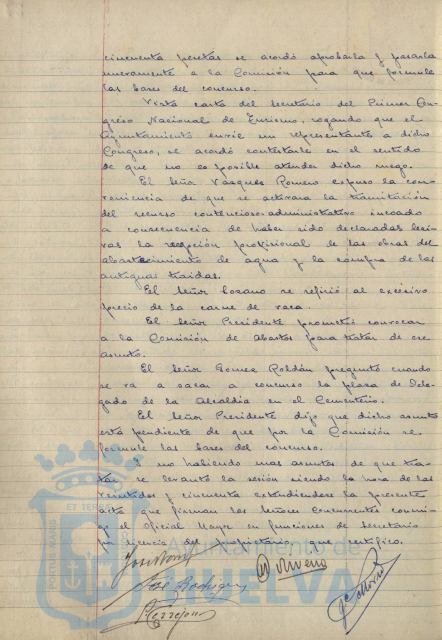 cincuenta pesetas se acordó aprobarla y pasarla
nuevamente a la Comisión para que formule
las bases del concurso.
Vista carta del Secretario del Primer Con-
greso Nacional de Turismo, rogando que el
Ayuntamiento envie un representante a dicho
Congreso, se acordó contestarle en el sentido
de que no es posible atender dicho ruego.
El Señor Vazquez Romero expuso la con-
veniencia de que se activara la tramitación
del recurso contencioso-administrativo incoado
a consecuencia de haber sido declaradas lesi-
vas la recepción provisional de las obras del
abastecimiento de agua y la compra de las
antiguas traidas.
El Señor Lozano se refirió al excesivo
precio de la carne de vaca.
El Señor Presidente prometió convocar
a la Comisión de Abastos para tratar de ese
asunto.
El Señor Gomez Roldán preguntó cuando
se va a sacar a concurso la plaza de Dele-
gado de la Alcaldia en el Cementerio.
El Señor Presidente dijo que dicho asunto
está pendiente de que por la Comisión se
formule las bases del concurso.
Y no habiendo mas asuntos de que tra-
tar se levantó la sesión siendo la hora de las
veintidos y cincuenta extendiendose la presente
acta que firman los Señores Concurrentes conmi-
go el Oficial Mayor en funciones de Secretario
por ausencia del propietario, que certifico.
José Rodrig
Moreno
PORTUS MARIS ET TERRÆ
Ayuntamiento de
HUELVA